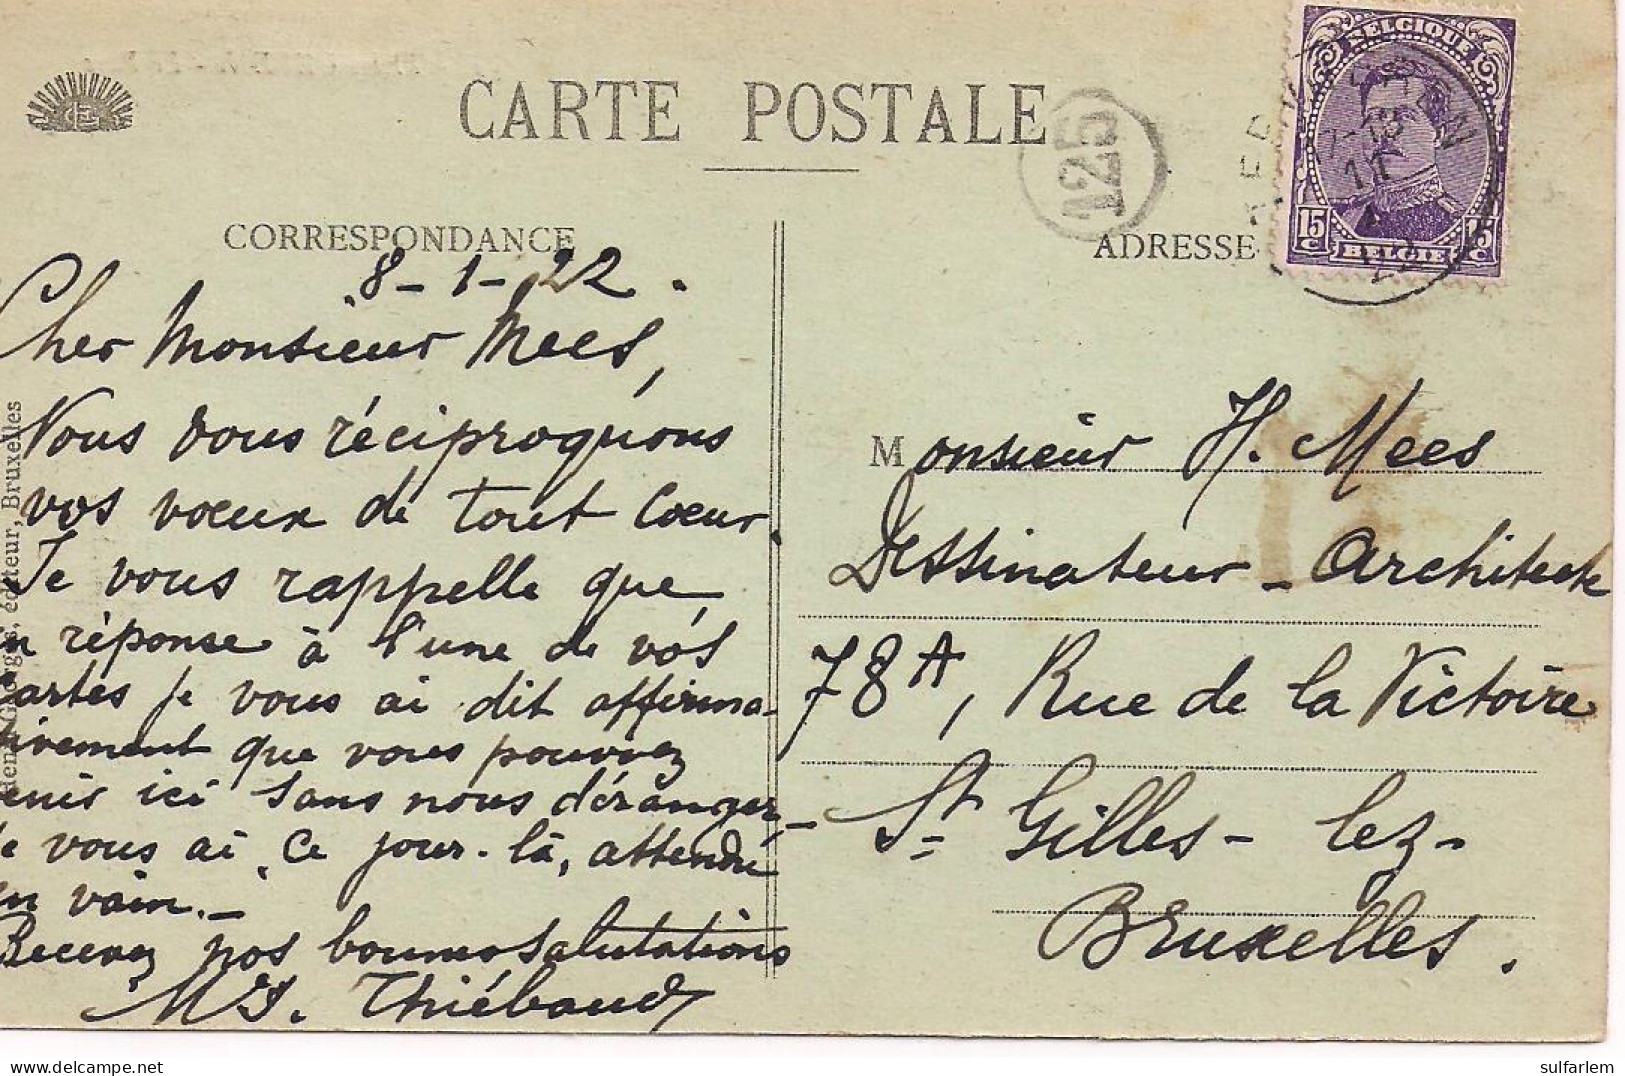 CARTE POSTALE
125
BELGIQUE
15 C
15 C
BELGIË
CORRESPONDANCE
ADRESSE
8-1-22.
Cher Monsieur Mees,
Nous vous réciproquons
vos vœux de tout cœur.
Je vous rappelle que,
en réponse à l'une de vos
cartes je vous ai dit affirma-
tivement que vous pouviez
venir ici sans nous déranger_
Je vous ai, ce jour-là, attendu
en vain._
Recevez nos bonnes salutations
Thiébaud
Monsieur H. Mees
Dessinateur - Architecte
78A, Rue de la Victoire
St Gilles-lez-
Bruxelles.
éditeur, Bruxelles
sulfarlem